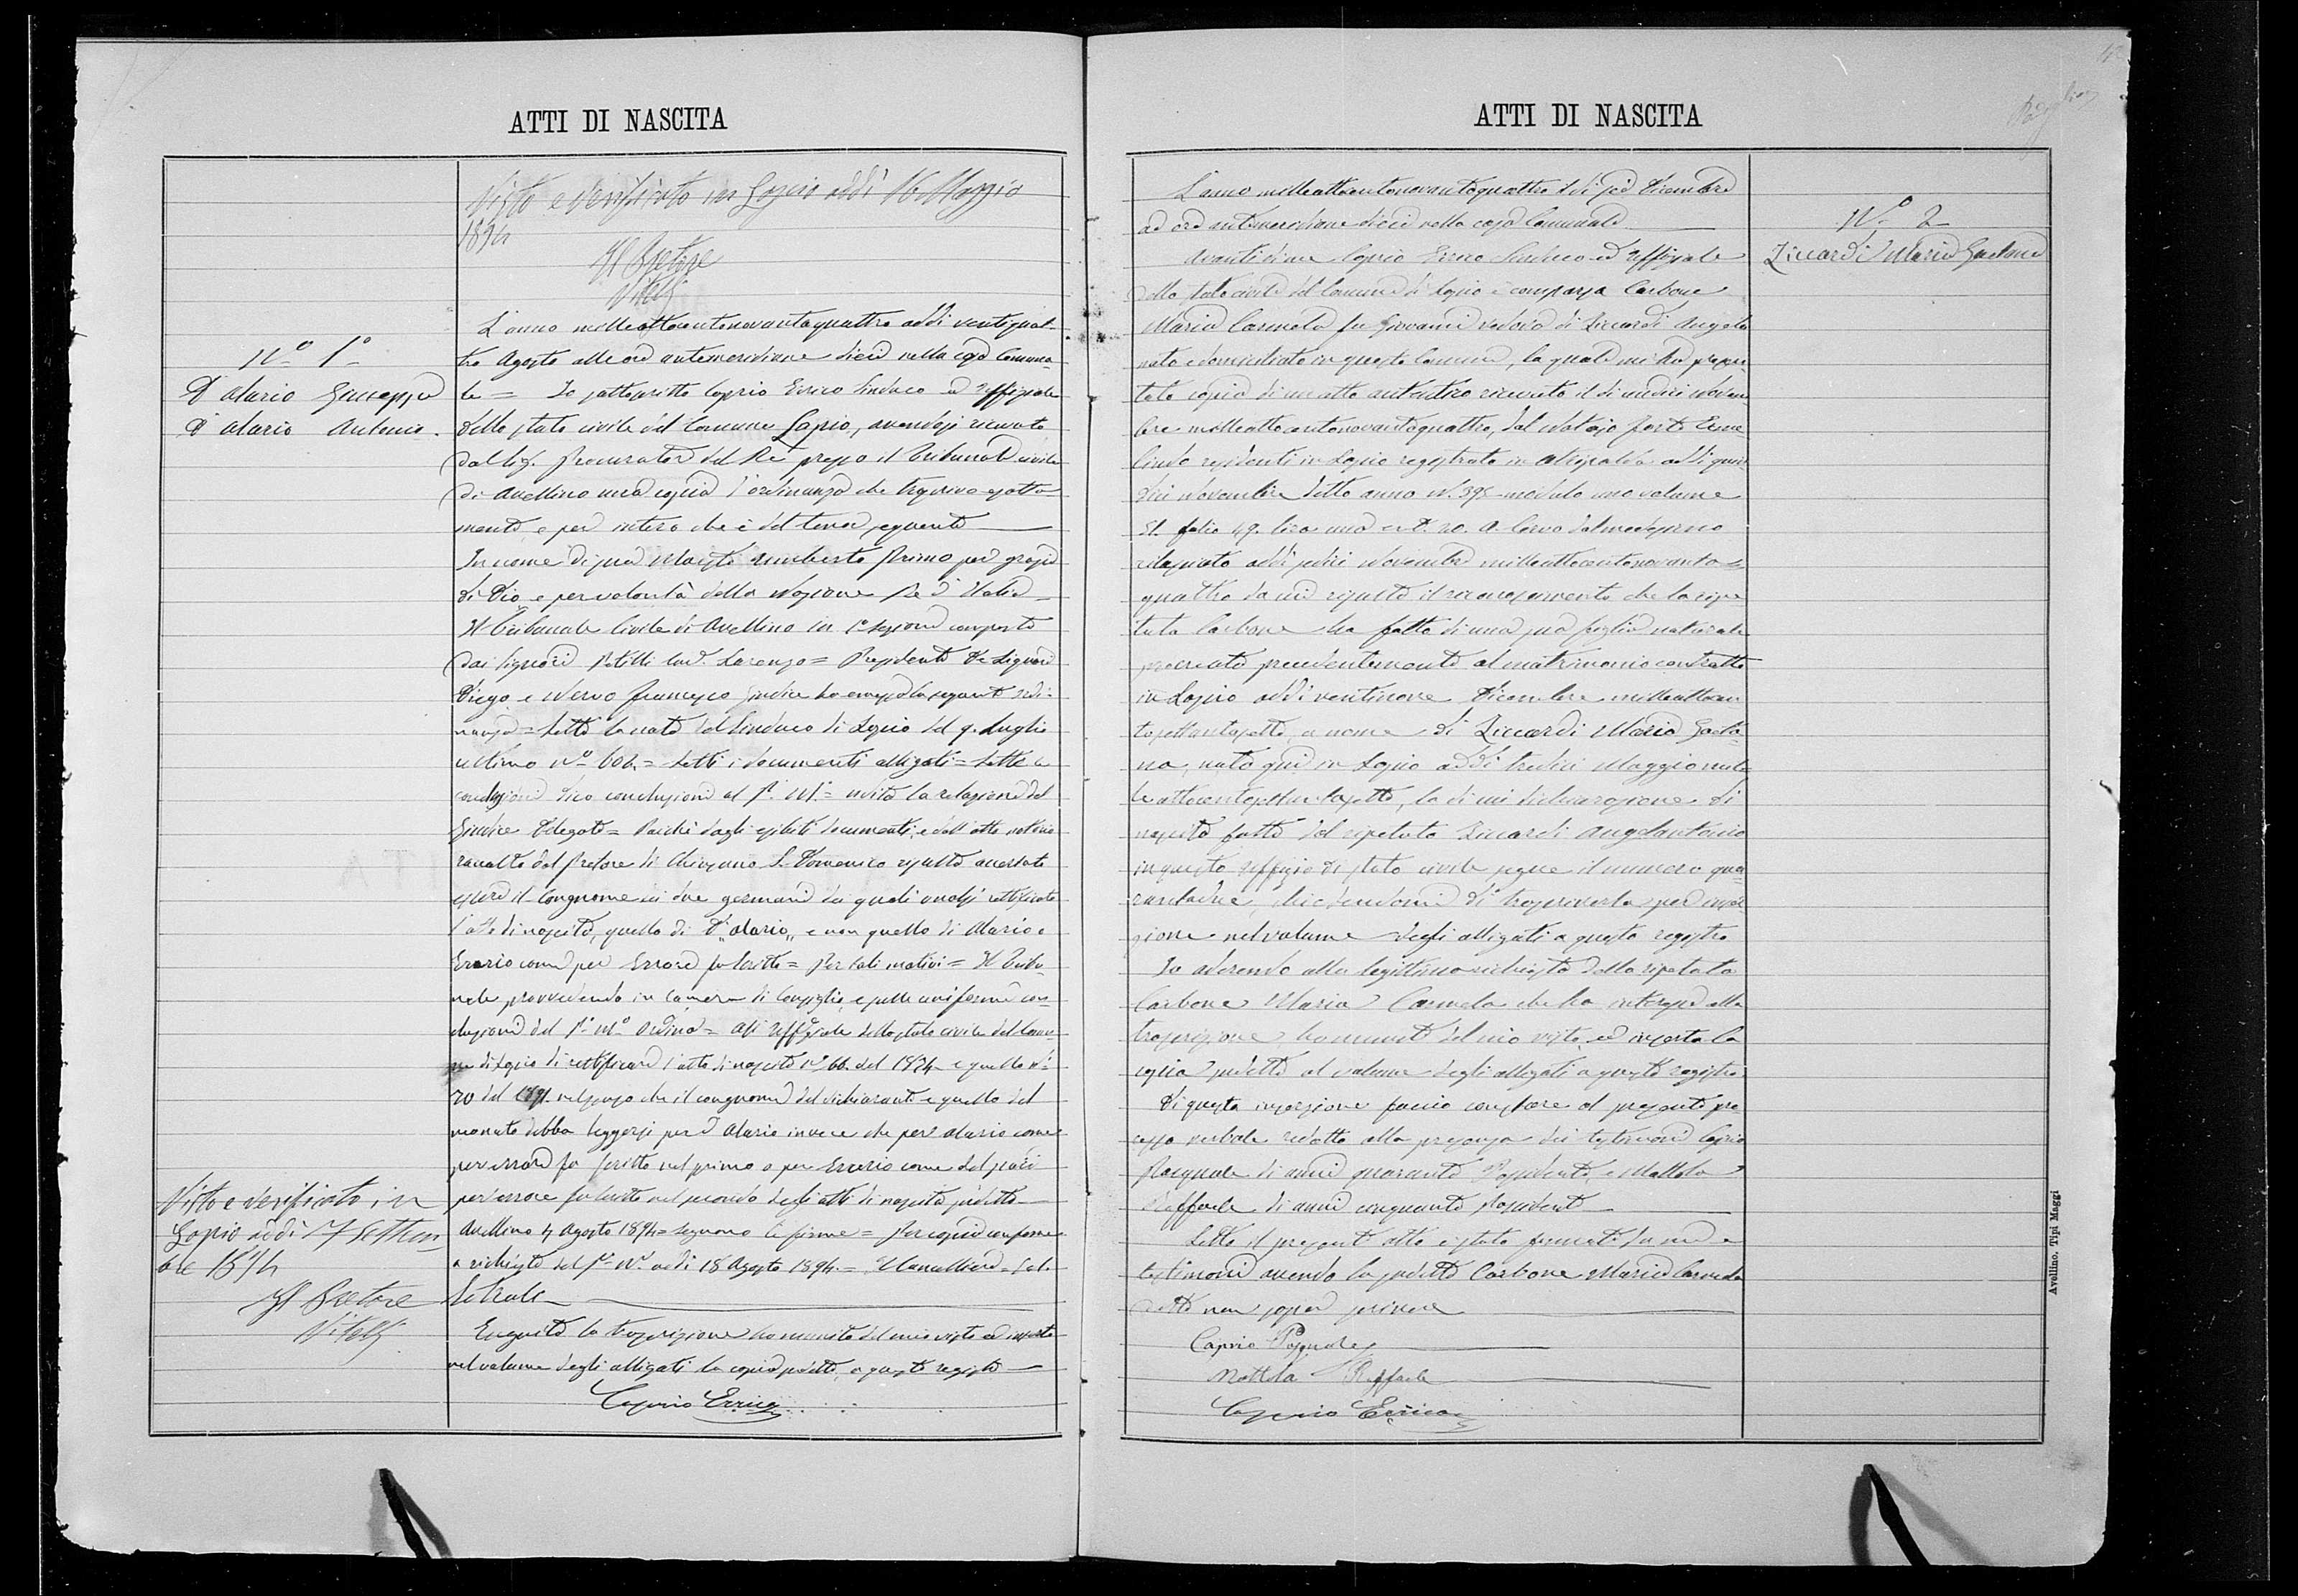 ATTI DI NASCITA
Visto e verificato in Lapio addì 16 Maggio
1894
Il Pretore
Vitelli
N.º 1º
D'Alario Giuseppe
D'Alario Antonio.
L'anno milleottocentonovantaquattro addì ventiquat-
tro Agosto alle ore antimeridiane dieci nella casa Comuna-
le = Io sottoscritto Caprio Errico Sindaco ed Uffiziale
dello stato civile del Comune Lapio, avendosi ricevuto
dal Sig. Procuratore del Re presso il Tribunale civile
di Avellino una copia d'ordinanza che trascrivo esatta-
mente e per intero che è del tenor seguente
In nome di sua Maestà Umberto Primo per grazia
di Dio e per volontà della Nazione Re d'Italia =
Il Tribunale Civile di Avellino in 1ª sezione composto
dai Signori Petilli Cav. Lorenzo = Presidente De Liguori
Diego e Nervo Francesco Giudice ha emesso la seguente ordi-
nanza = Letta la nota del Sindaco di Lapio del 9. Luglio
ultimo Nº 606. = Letti i documenti alligati = Lette le
conclusioni dico conclusioni al P. M. = udita la relazione del
Giudice Delegato = Poiché dagli esibiti documenti, e dall'atto notorio
raccolto dal Pretore di Chiusano S. Domenico risulta accertato
essere il congnome dei due germani dei quali vuolsi rettificato
l'atto di nascita, quello di D'"Alario" e non quello di Alario e
Erario come per errore fu scritto = Per tali motivi = Il Tribu-
nale provvedendo in Camera di Consiglio e sulle uniformi con-
clusioni del P. M.º Ordina = all'Uffiziale dello stato civile del Comu-
ne di Lapio di rettificare l'atto di nascita Nº 66. del 1874 e quello Nº
20 del 1871. nel senso che il congnome del dichiarante e quello del
neonato debba leggersi per D'Alario invece che per Alario come
per errore fu scritto nel primo o per Erario come del pari
per errore fu scritto nel secondo degli atti di nascita sudetti
Avellino 4 Agosto 1894 = Seguono le firme = Per copia conforme
a richiesta del P. M. addì 18 Agosto 1894. =
Eseguita la trascrizione ho munito del mio visto ed inserto
nel volume degli alligati la copia sudetta a questo registro
Caprio Errico
Visto e verificato in
Lapio addì 7 Settem-
bre 1894
Il Pretore
Vitelli
ATTI DI NASCITA
N.º 2
Ziccardi Maria Gaetana
L'anno milleottocentonovantaquattro addì sei Dicembre
ad ore antimeridiane dieci nella casa Comunale
Avanti di me Caprio Errico Sindaco ed Uffiziale
dello stato civile del Comune di Lapio è comparsa Carbone
Maria Carmela fu Giovanni vedova di Ziccardi Angelo
nata e domiciliata in questo Comune, la quale mi ha presen-
tata copia di un atto autentico ricevuto il dì undici Novem-
bre milleottocentonovantaquattro, dal Notajo Forte Erme-
lindo residente in Lapio registrato in Atripalda addì quin-
dici Novembre detto anno N. 398 modulo uno volume
51. folio 49. lire una e c. 20. A. Cervo dal medesimo
rilasciato addì sedici Novembre milleottocentonovanta-
quattro da cui risulta il riconoscimento che la ripe-
tuta Carbone ha fatto di una sua figlia naturale
procreata precedentemente al matrimonio contratto
in Lapio addì ventinove Dicembre milleottocen-
tosettantasette a nome di Ziccardi Maria Gaeta-
na, nata quì in Lapio addì tredici Maggio mil-
leottocentosettantasette, la di cui dichiarazione di
nascita fatta dal ripetuto Ziccardi Angelantonio
in questo uffizio di stato civile segue il numero qua-
rantadue, chiedendomi di trascriverla per inser-
zione nel volume degli alligati a questo registro
Io aderendo alla legittima richiesta della ripetuta
Carbone Maria Carmela che ha interesse alla
trascrizione, ho munito del mio visto, ed inserta la
copia sudetta al volume degli allegati a questo registro.
Di questa inserzione faccio constare al presente pro-
cesso verbale redatto alla presenza dei testimoni Caprio
Pasquale di anni quaranta Possidente, e Mottola
Raffaele di anni cinquanta Possidente
Letto il presente atto è stato firmato da me e
testimoni avendo la sudetta Carbone Maria Carmela
detto non saper firmare
Caprio Pasquale
Mottola Raffaele
Caprio Errico
Avellino. Tipi Maggi